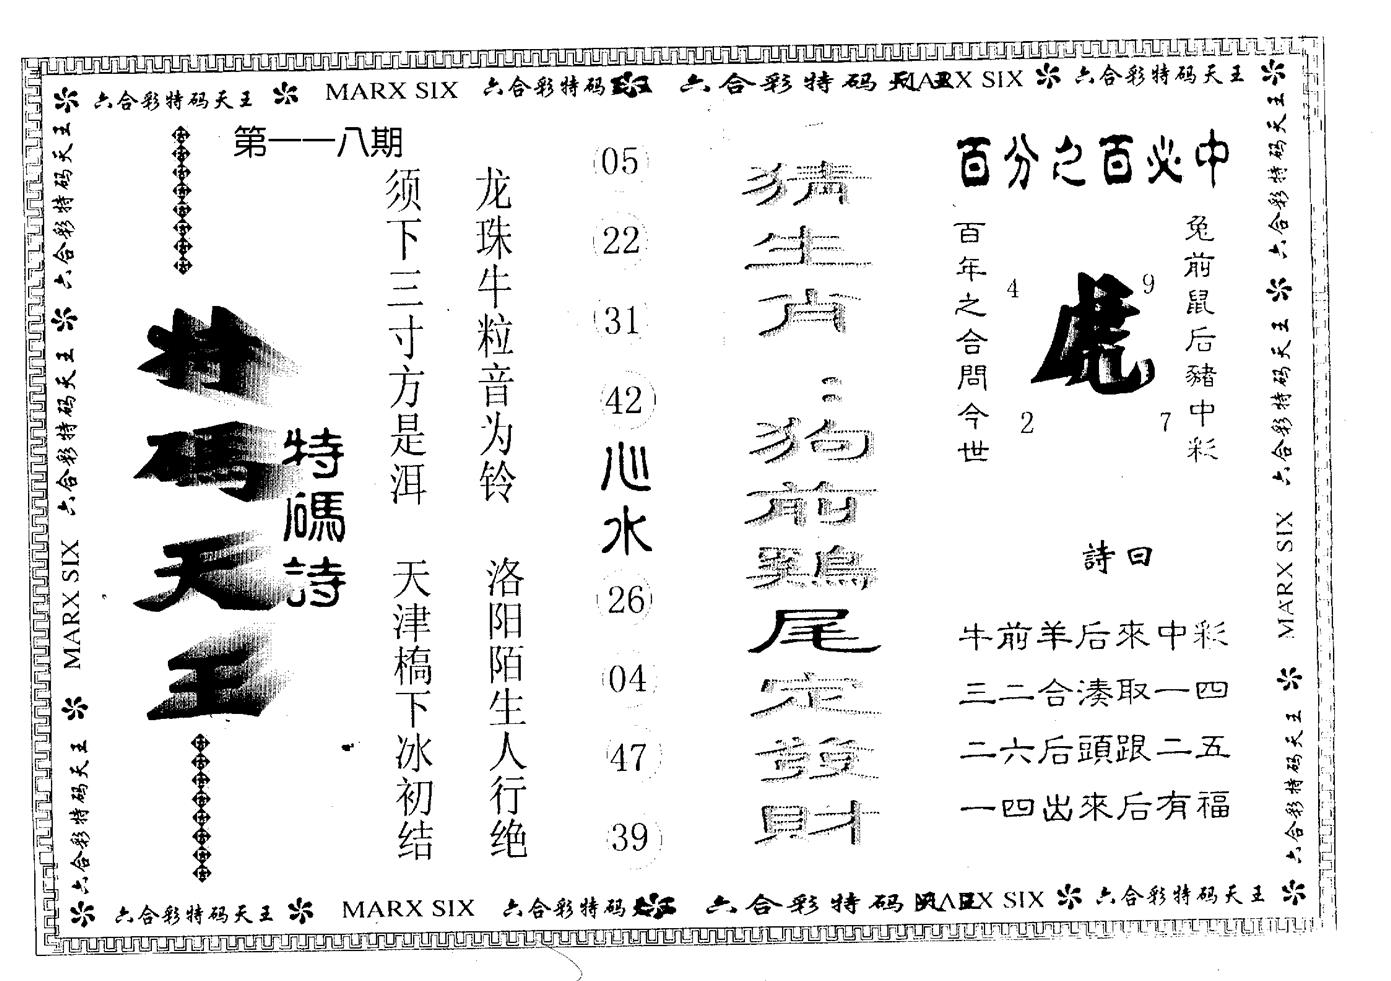 六合彩特码天王 MARX SIX 六合彩特码 六合彩特码 MARX SIX 六合彩特码天王
第一一八期
特碼天王
特碼詩
须下三寸方是洱 天津槁下冰初结
龙珠牛粒音为铃 洛阳陌生人行绝
05
22
31
42
心水
26
04
47
39
猜生肖：狗前鷄尾定發財
百分之百必中
百年之合問今世
4
2
虎
9
7
兔前鼠后豬中彩
詩曰
牛前羊后來中彩
三二合湊取一四
二六后頭跟二五
一四出來后有福
六合彩特码天王 六合彩特码天王 六合彩特码天王 MARX SIX 六合彩特码天王
六合彩特码天王 六合彩特码天王 MARX SIX 六合彩特码天王
六合彩特码天王 MARX SIX 六合彩特码 六合彩特码 MARX SIX 六合彩特码天王